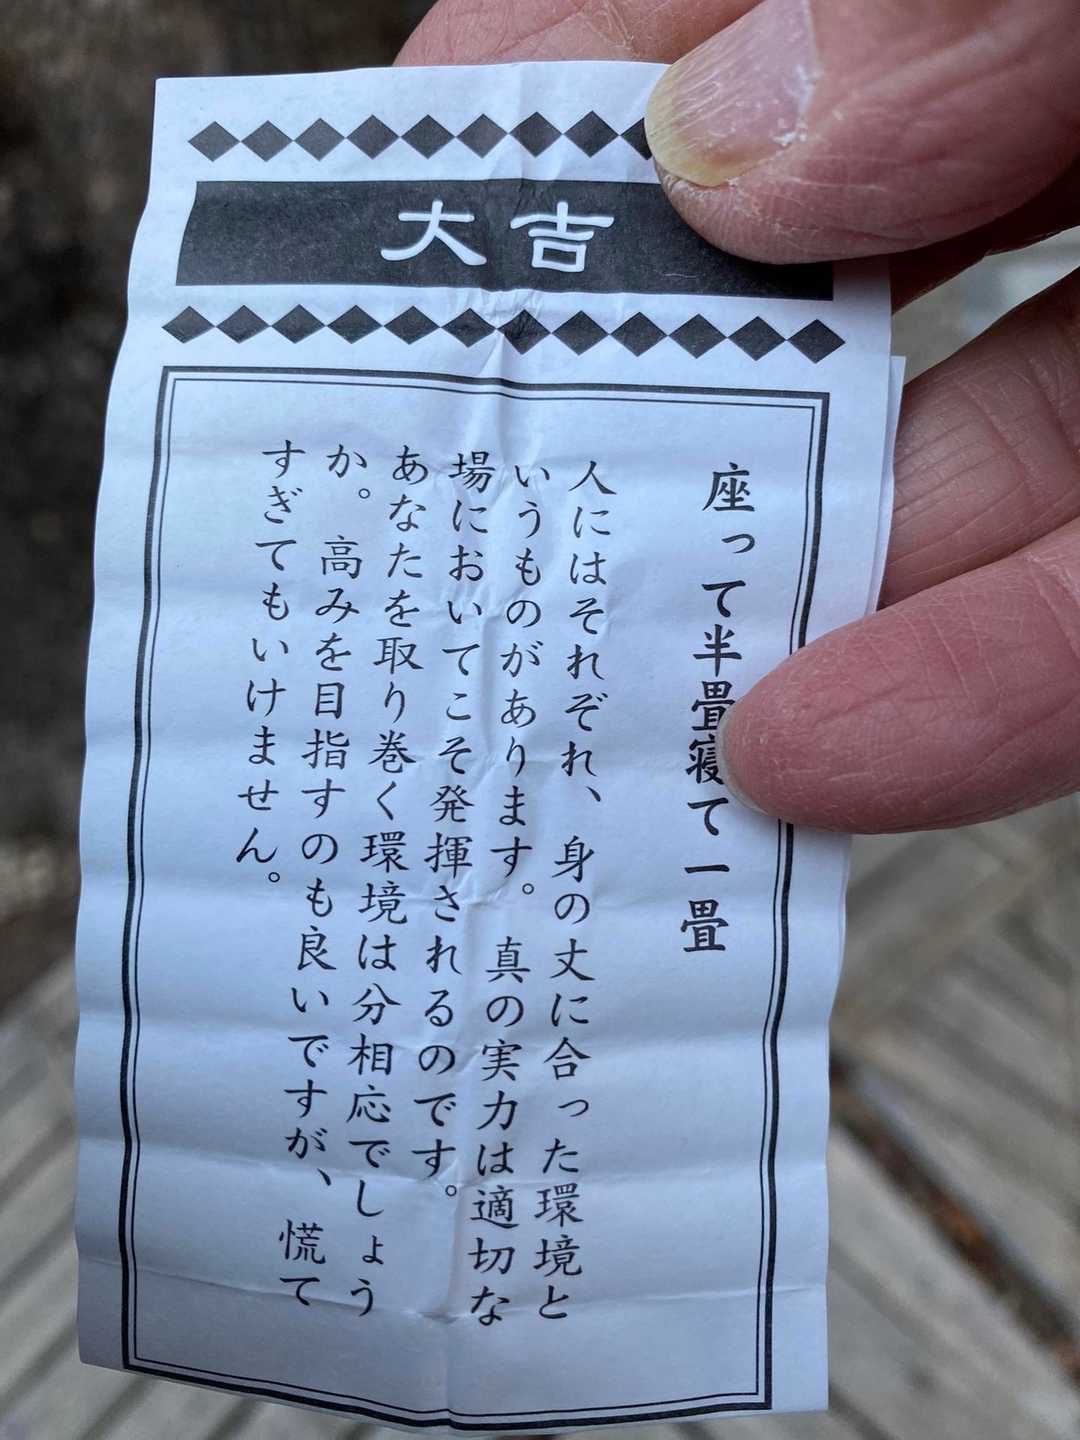 大吉
座って半畳寝て一畳
人にはそれぞれ、身の丈に合った環境と
いうものがあります。真の実力は適切な
場においてこそ発揮されるのです。
あなたを取り巻く環境は分相応でしょう
か。高みを目指すのも良いですが、慌て
すぎてもいけません。